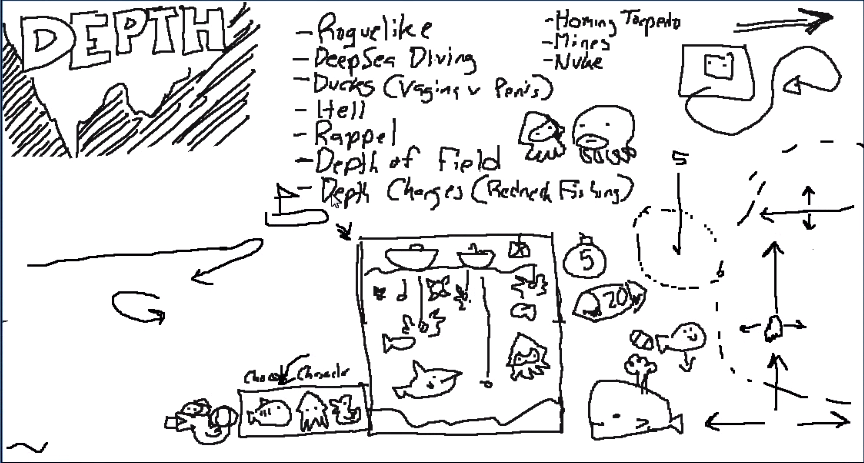 DEPTH
- Roguelike
- DeepSea Diving
- Ducks (Vagina v Penis)
- Hell
- Rappel
- Depth of Field
- Depth Charges (Redneck Fishing)
- Homing Torpedo
- Mines
- Nuke
5
5
20
Character